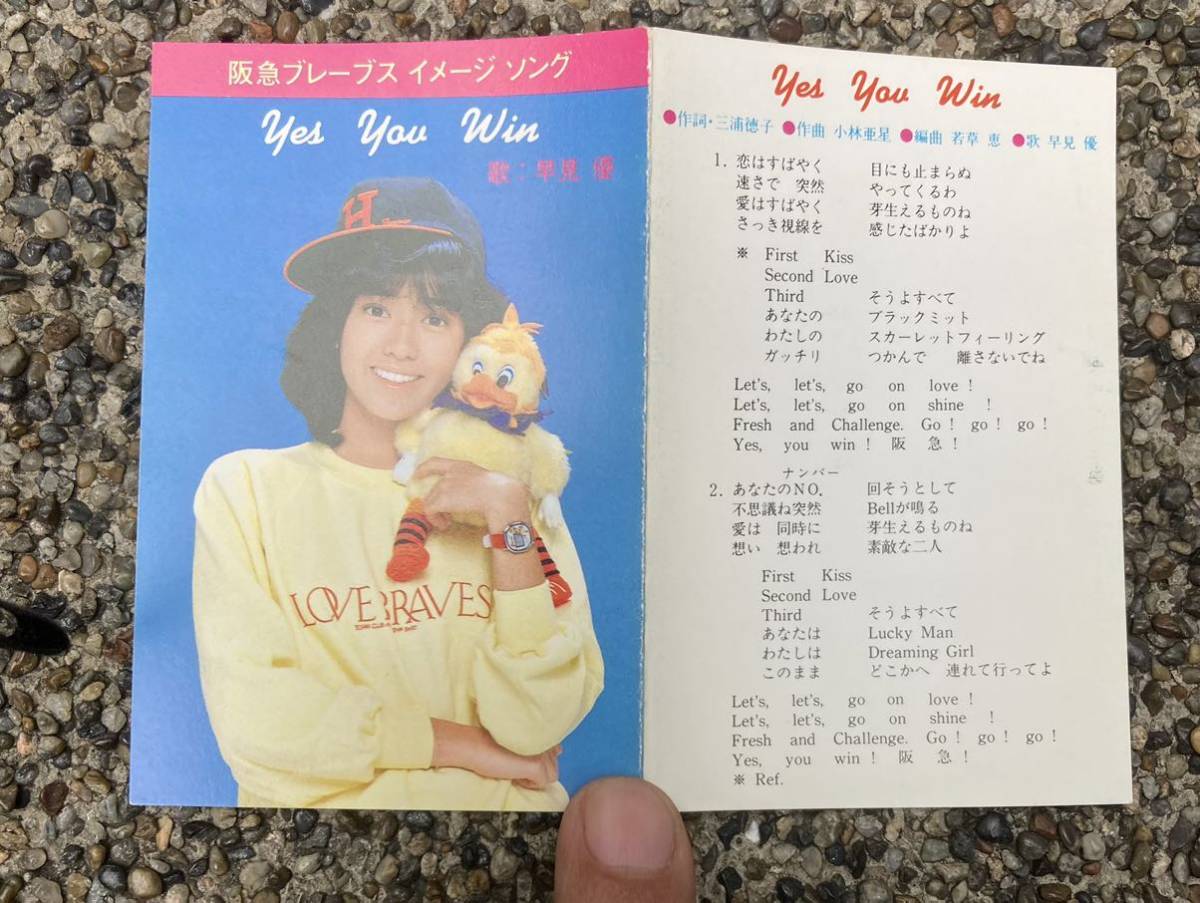 阪急ブレーブス イメージ ソング
Yes You Win
歌：早見 優
H
LOVE BRAVES
Yes You Win
●作詞・三浦徳子 ●作曲 小林亜星 ●編曲 若草 恵 ●歌 早見 優
1. 恋はすばやく 目にも止まらぬ
速さで 突然 やってくるわ
愛はすばやく 芽生えるものね
さっき視線を 感じたばかりよ
※ First Kiss
Second Love
Third そうよすべて
あなたの ブラックミット
わたしの スカーレットフィーリング
ガッチリ つかんで 離さないでね
Let's, let's, go on love !
Let's, let's, go on shine !
Fresh and Challenge. Go ! go ! go !
Yes, you win ! 阪 急 !
ナンバー
2. あなたのNO. 回そうとして
不思議ね突然 Bellが鳴る
愛は 同時に 芽生えるものね
想い 想われ 素敵な二人
First Kiss
Second Love
Third そうよすべて
あなたは Lucky Man
わたしは Dreaming Girl
このまま どこかへ 連れて行ってよ
Let's, let's, go on love !
Let's, let's, go on shine !
Fresh and Challenge. Go ! go ! go !
Yes, you win ! 阪 急 !
※ Ref.